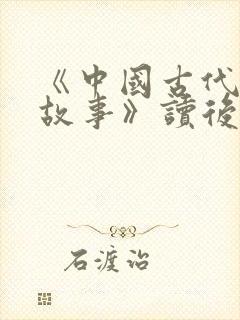 《中國古代
故事》讀後
石渡治